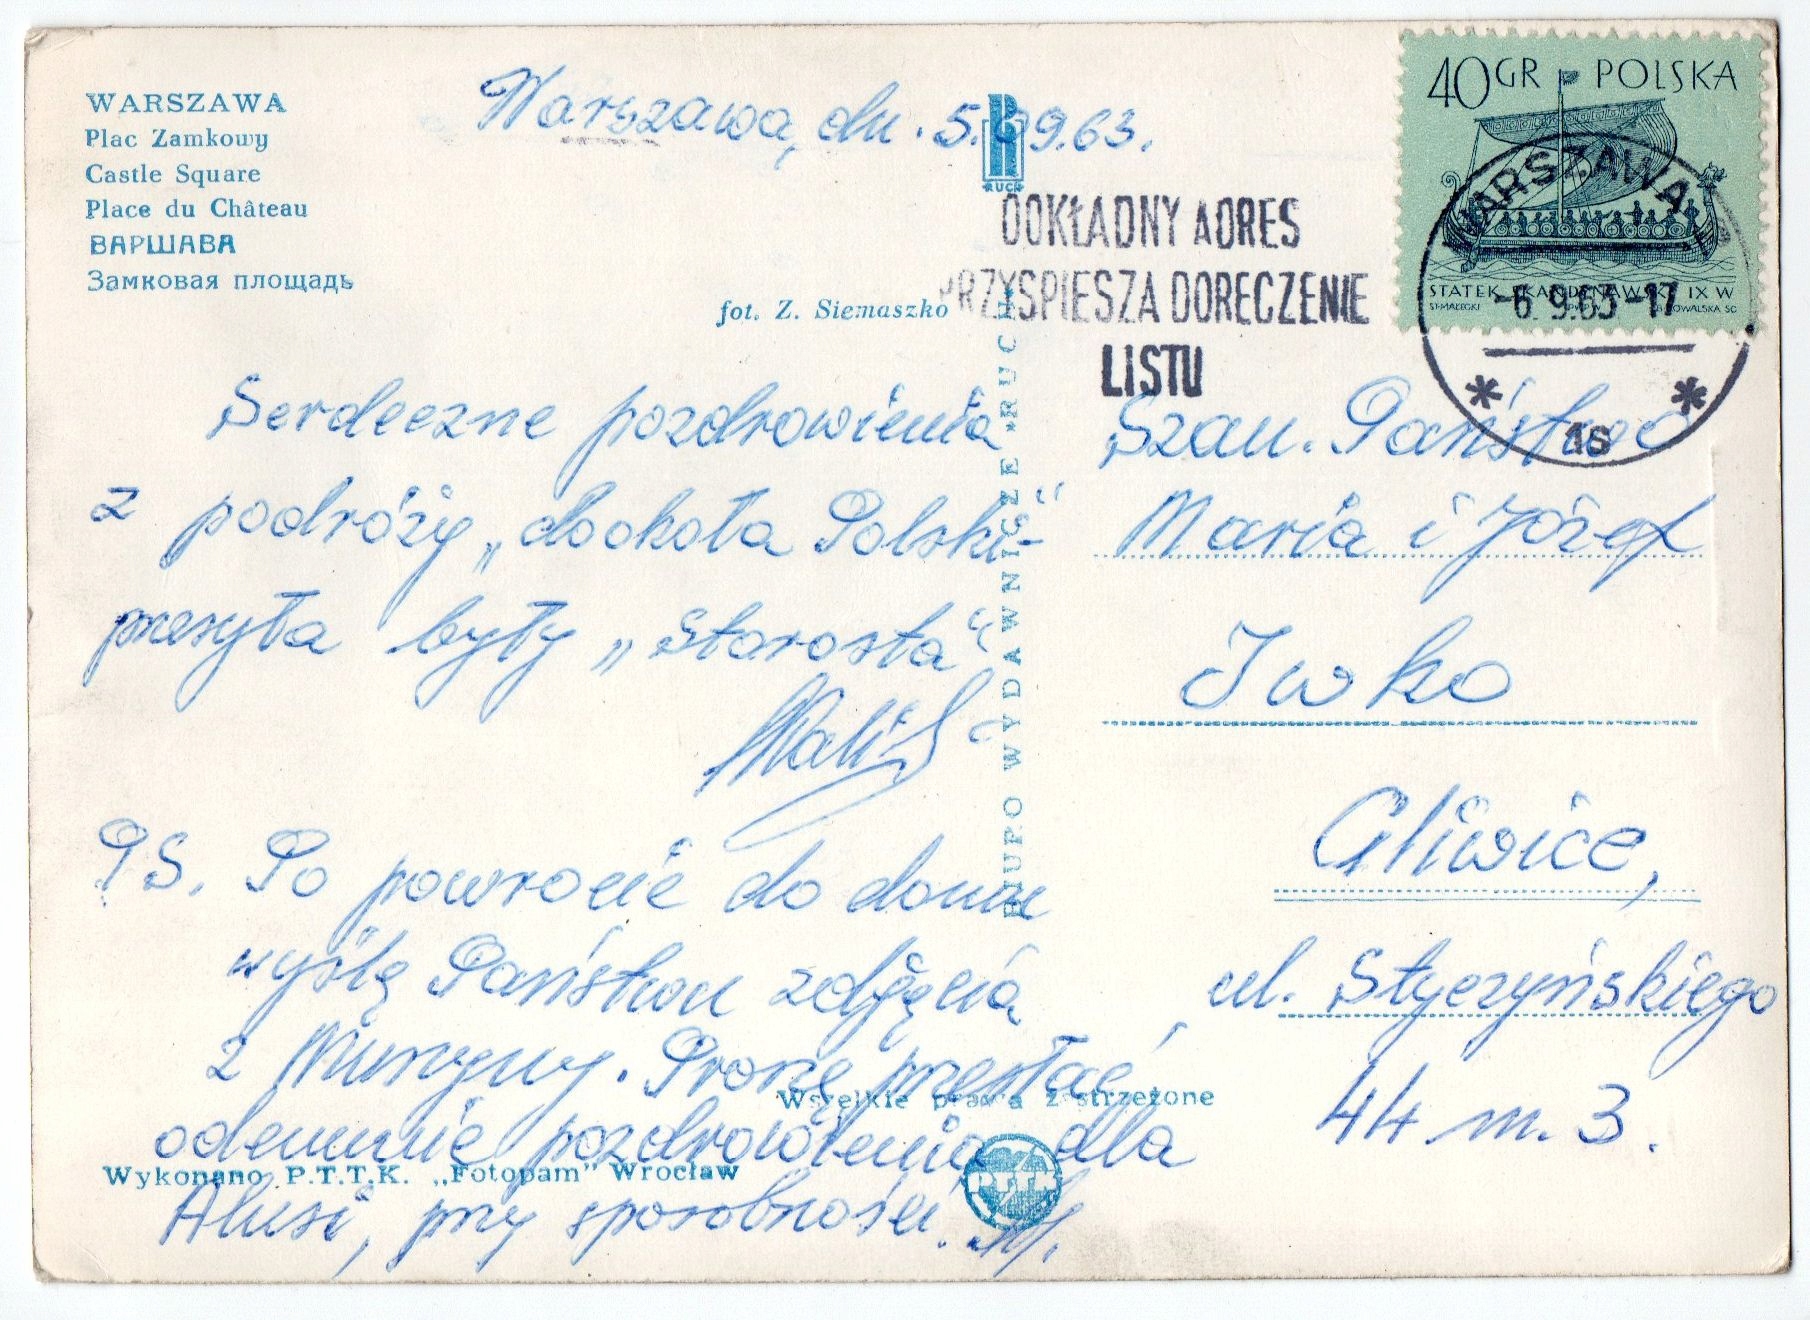 WARSZAWA
Plac Zamkowy
Castle Square
Place du Château
ВАРШАВА
Замковая площадь
fot. Z. Siemaszko
Warszawa, dn. 5.09.63.
Serdeczne pozdrowienia
z podróży „dookoła Polski"
przesyła były „Starosta"
PS. Po powrocie do domu
wyślę Państwu zdjęcia
z Murzyny. Proszę przesłać
odemnie pozdrowienia dla
Alusi, przy sposobności. M.
RUCH
BIURO WYDAWNICZE «RUCH»
DOKŁADNY ADRES
PRZYSPIESZA DORĘCZENIE
LISTU
40GR POLSKA
STATEK SKANDYNAWSKI IX W
ST·MAŁECKI
KOWALSKA SC
WARSZAWA
-6.9.63-17
* *
Szan. Państwo
Maria i Józef
Iwko
Gliwice,
ul. Styczyńskiego
44 m. 3.
Wszelkie prawa zastrzeżone
Wykonano P.T.T.K. „Fotopam" Wrocław
PTTK